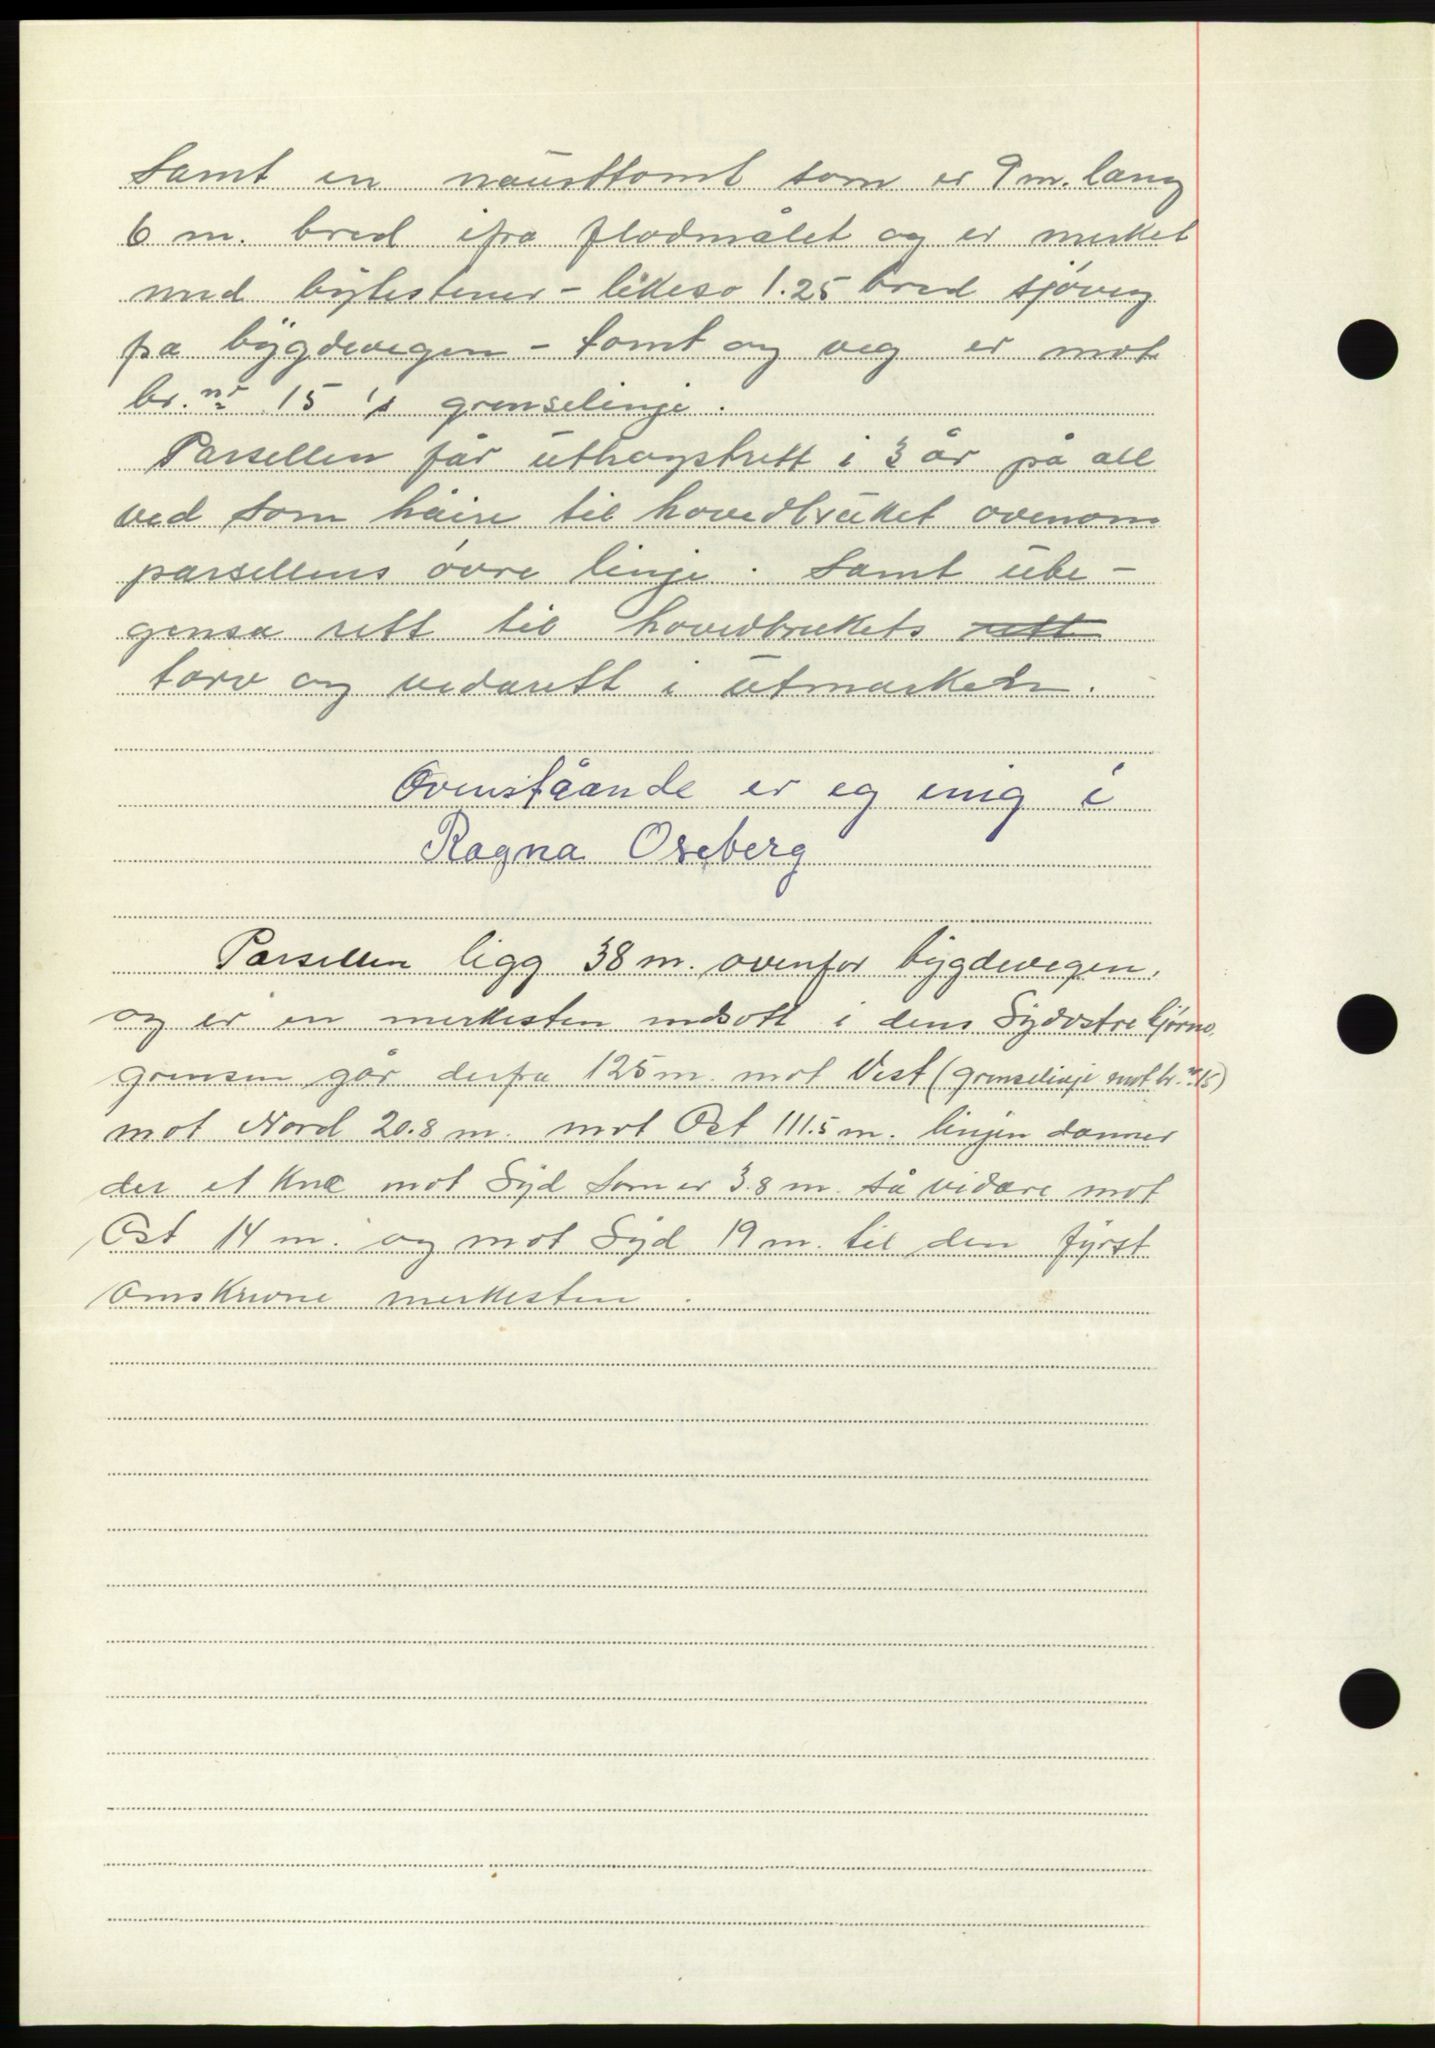 Samt en nausttomt som er 9 m. lang
6 m. bred ifra flodmålet og er merket
med bytestener - likeso 1.25 bred sjöveg
pa bygdevegen - tomt og veg er mot
br. nr 15 's grenselinje.
Parsellen får uthogstrett i 3 år på all
ved som höire til hovedbruket ovenom
parsellens övre linje. Samt ube-
gensa rett til hovedbrukets rett
torv og vedarett i utmarken.
Ovenståande er eg enig i
Ragna Oseberg
Parsellen ligg 38 m. ovenfor bygdevegen,
og er en merkesten nedsatt i dens Sydöstre hjörne,
grensen går derfra 125 m. mot Vest (grenselinje mot br. nr 15)
mot Nord 20.8 m. mot Ost 111.5 m. linjen danner
der et kne mot Syd som er 3.8 m. så vidare mot
Ost 14 m. og mot Syd 19 m. til den fyrst
omskrevne merkesten.